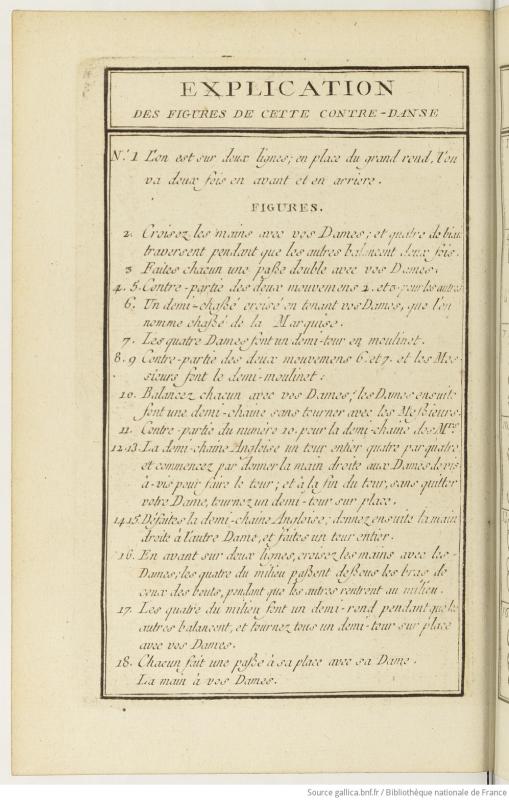 EXPLICATION
DES FIGURES DE CETTE CONTRE-DANSE
N.º 1 L'on est sur deux lignes; en place du grand rond, l'on
va deux fois en avant et en arriere.
FIGURES.
2. Croisez les mains avec vos Dames; et quatre de biais
traversent pendant que les autres balancent deux fois.
3 Faites chacun une paße double avec vos Dames.
4. 5. Contre-partie des deux mouvemens 2. et 3. pour les autres
6. Un demi-chaßé croisé en tenant vos Dames, que l'on
nomme chaßé de la Marquise.
7. Les quatre Dames font un demi-tour en moulinet.
8. 9 Contre-partie des deux mouvemens 6. et 7. et les Mes-
sieurs font le demi-moulinet:
10. Balancez chacun avec vos Dames; les Dames ensuite
font une demi-chaine sans tourner avec les Meßieurs.
11. Contre-partie du numéro 10. pour la demi-chaine des M.rs
12.13. La demi-chaine Angloise un tour entier quatre par quatre
et commencez par donner la main droite aux Dames de vis-
à-vis pour faire le tour; et à la fin du tour, sans quitter
votre Dame, tournez un demi-tour sur place.
14.15. Défaites la demi-chaine Angloise; donnez ensuite la main
droite à l'autre Dame, et faites un tour entier.
16. En avant sur deux lignes, croisez les mains avec les-
Dames; les quatre du milieu paßent deßous les bras de
ceux des bouts, pendant que les autres rentrent au milieu.
17. Les quatre du milieu font un demi-rond pendant que les
autres balancent, et tournez tous un demi-tour sur place
avec vos Dames.
18. Chacun fait une paße à sa place avec sa Dame.
La main à vos Dames.
Source gallica.bnf.fr / Bibliothèque nationale de France